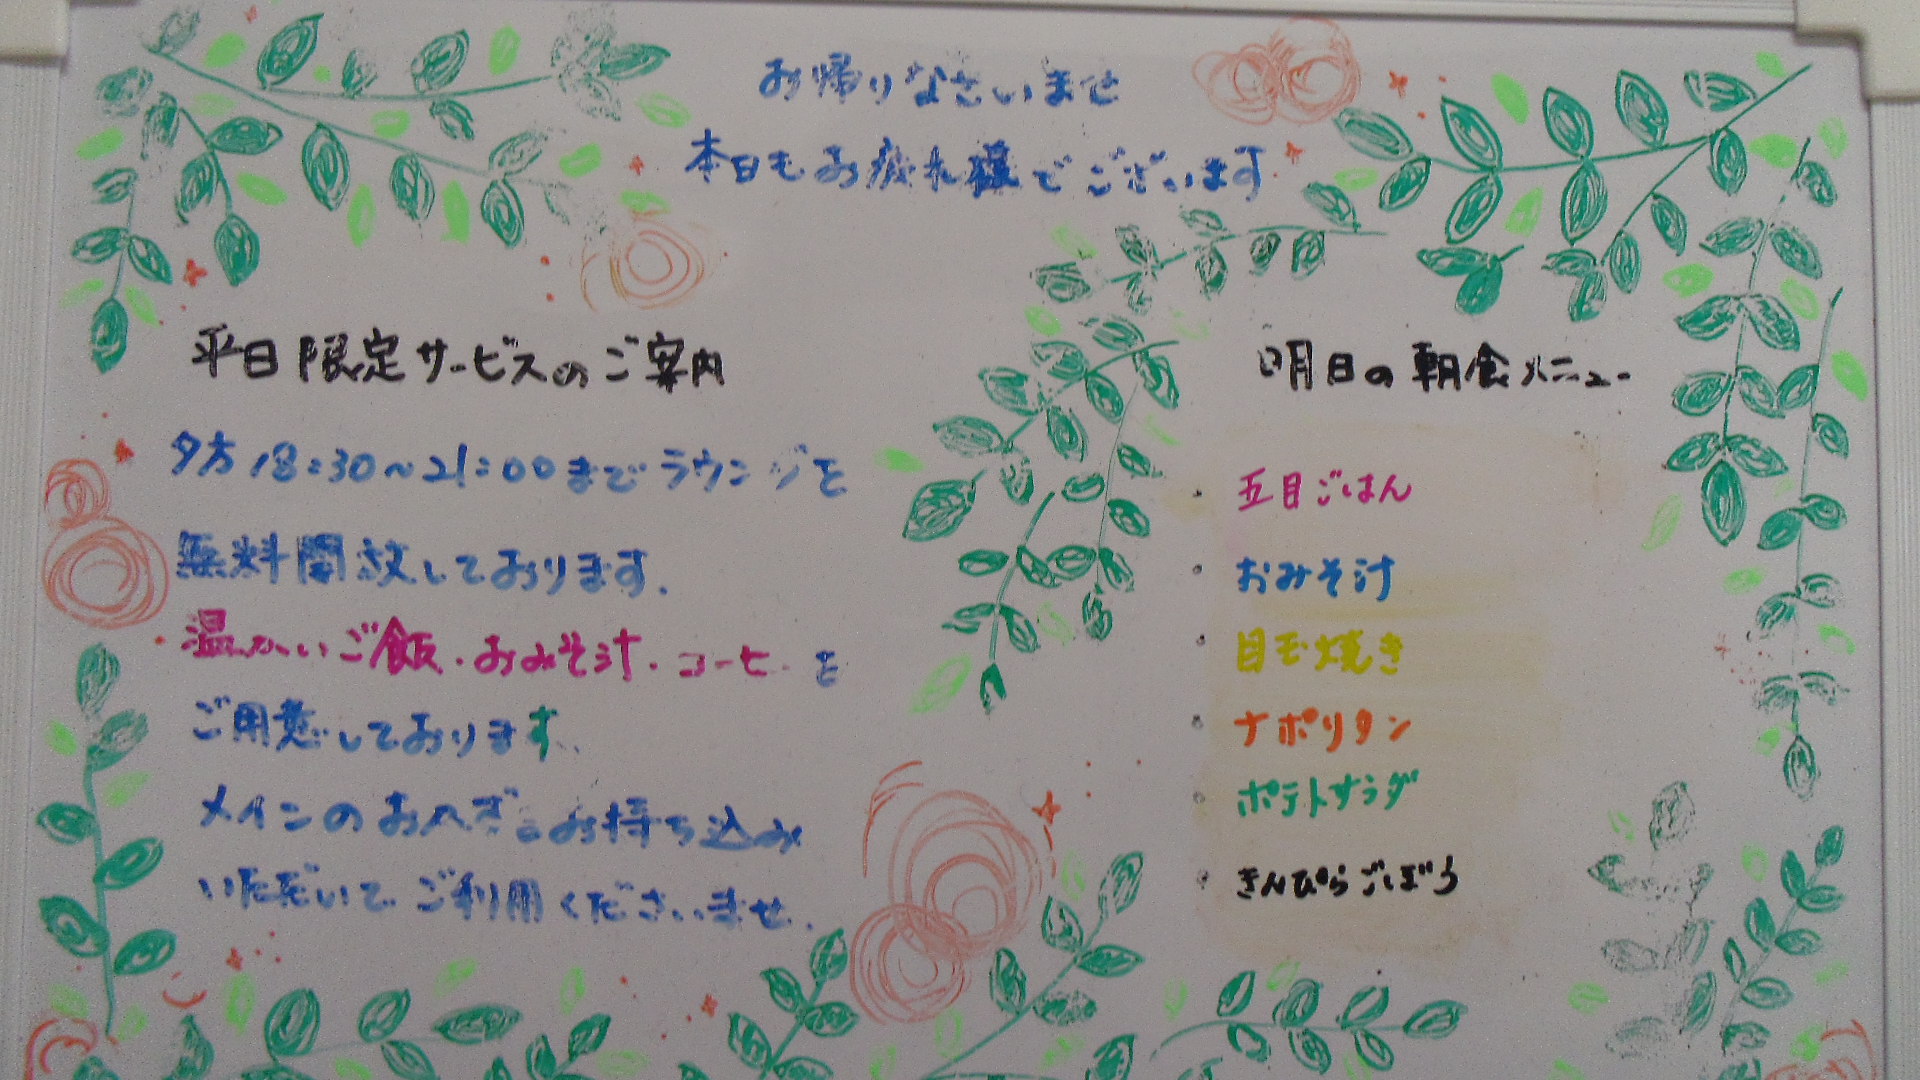 お帰りなさいませ
本日もお疲れ様でございます
平日限定サービスのご案内
夕方18:30~21:00までラウンジを
無料開放しております.
温かいご飯・おみそ汁・コーヒーを
ご用意しております.
メインのおかずをお持ち込み
いただいてご利用くださいませ.
明日の朝食メニュー
・五目ごはん
・おみそ汁
・目玉焼き
・ナポリタン
・ポテトサラダ
・きんぴらごぼう